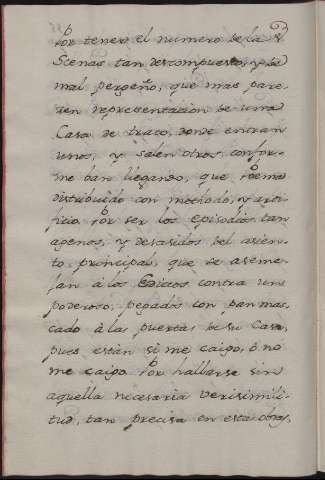 Por tener el numero de la s
Scenas tan descompuesto, y de
mal pergeño, que mas pare-
cen representacion de una
Casa de trato, donde entran
unos, y salen otros confor-
me van llegando, que Poema
distribuido con methodo, y arti-
ficio. Por ser los Episodios tan
agenos, y desasidos del asien-
to principal, que se aseme-
jan à los Edictos contra un
poderoso, pegados con pan mas-
cado à las puertas de su Casa,
pues estàn si me caigo, ò no
me caigo. Por hallarse sin
aquella nicesaria verisimili-
tud, tan precisa en esta obras,